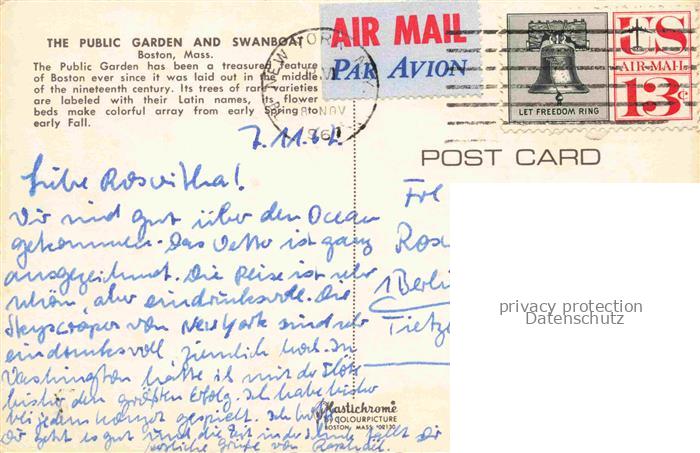 THE PUBLIC GARDEN AND SWANBOAT
Boston, Mass.
The Public Garden has been a treasured feature
of Boston ever since it was laid out in the middle
of the nineteenth century. Its trees of rare varieties
are labeled with their Latin names, its flower
beds make colorful array from early Spring to
early Fall.
AIR MAIL
PAR AVION
NEW YORK
8 NOV
196
LET FREEDOM RING
US
AIR MAIL
13c
POST CARD
7.11.61.
Liebe Roswitha!
Wir sind gut über den Ocean
gekommen. Das Wetter ist ganz
ausgezeichnet. Die Reise ist sehr
schön, aber eindrucksvoll. Die
Skyscraper von New York sind sehr
eindrucksvoll, ziemlich hoch. In
Washington hatte ich mit der Flöte
bisher den größten Erfolg. Ich habe bisher
bei jedem Konzert gespielt. Ich hoffe
Dir geht es gut und die Zeit in der Schule fällt Dir
herzliche Grüße von
Frl
Ros
1 Berli
Tietz
privacy protection
Datenschutz
Plastichrome
BY COLOURPICTURE
BOSTON, MASS. 02130